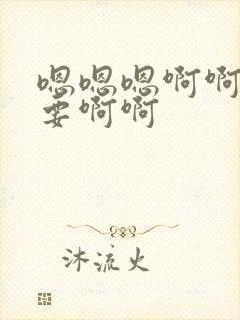 嗯嗯嗯啊啊
要啊啊
沐流火